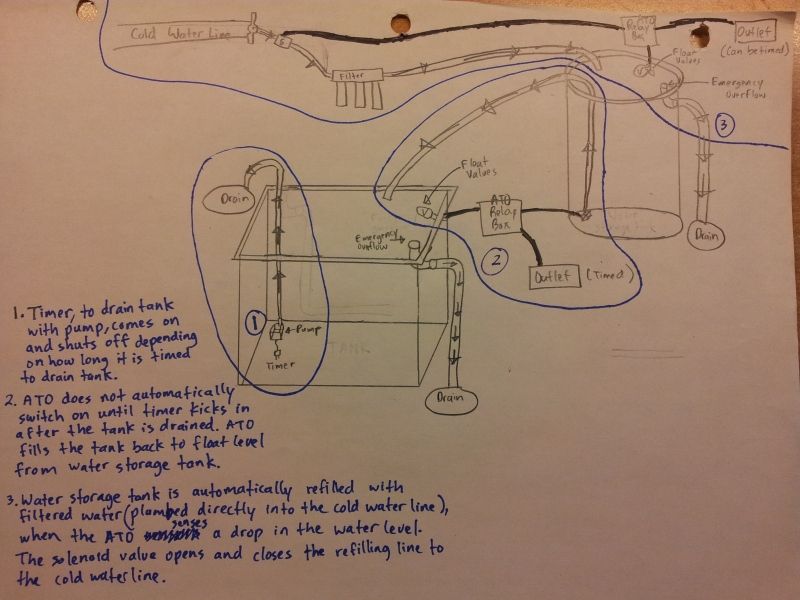 Cold Water Line
S
Filter
ATO
Relay
Box
Outlet
(Can be timed)
Float
Valves
V
Emergency
Overflow
3
Drain
Drain
Float
Valves
V
ATO
Relay
Box
Emergency
Overflow
2
Outlet (Timed)
1
Pump
Timer
TANK
Drain
1. Timer, to drain tank
with pump, comes on
and shuts off depending
on how long it is timed
to drain tank.
2. ATO does not automatically
switch on until timer kicks in
after the tank is drained. ATO
fills the tank back to float level
from water storage tank.
3. Water storage tank is automatically refilled with
filtered water (plumbed directly into the cold water line),
when the ATO senses a drop in the water level.
The solenoid valve opens and closes the refilling line to
the cold water line.